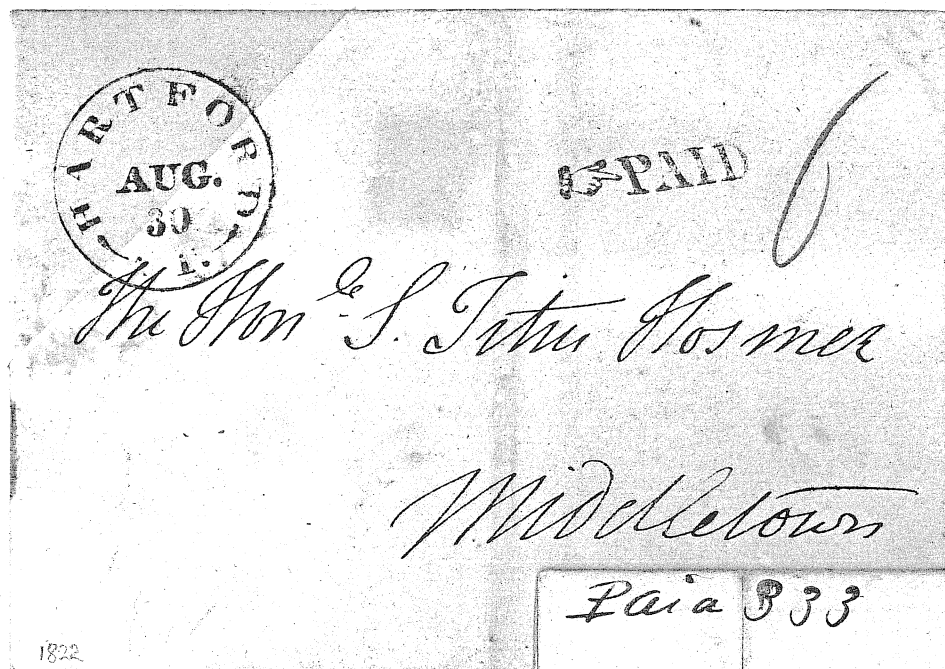 HARTFORD
AUG.
30
PAID 6
The Honle. S. Titus Hosmer
Middletown
Paid 333
1822